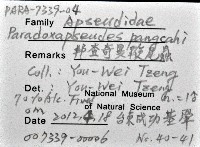 PARA-7339-04
Family Apseudidae
Paradoxapseudes pangcahi
Remarks 邦查奇異
Coll.: You-Wei Tzeng
Det.: You-Wei Tzeng
70% Alc. Final
National Museum
of Natural Science
n.=18
0m
2012.4.18 台東成功基翬
007339-00006
No. 40-41